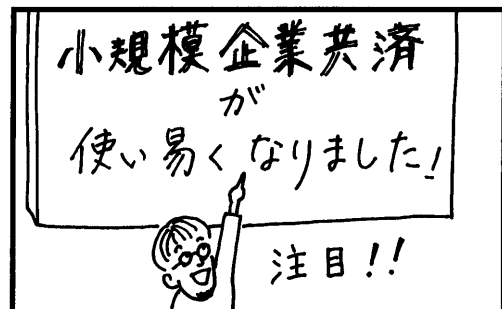 小規模企業共済
が
使い易くなりました!
注目!!